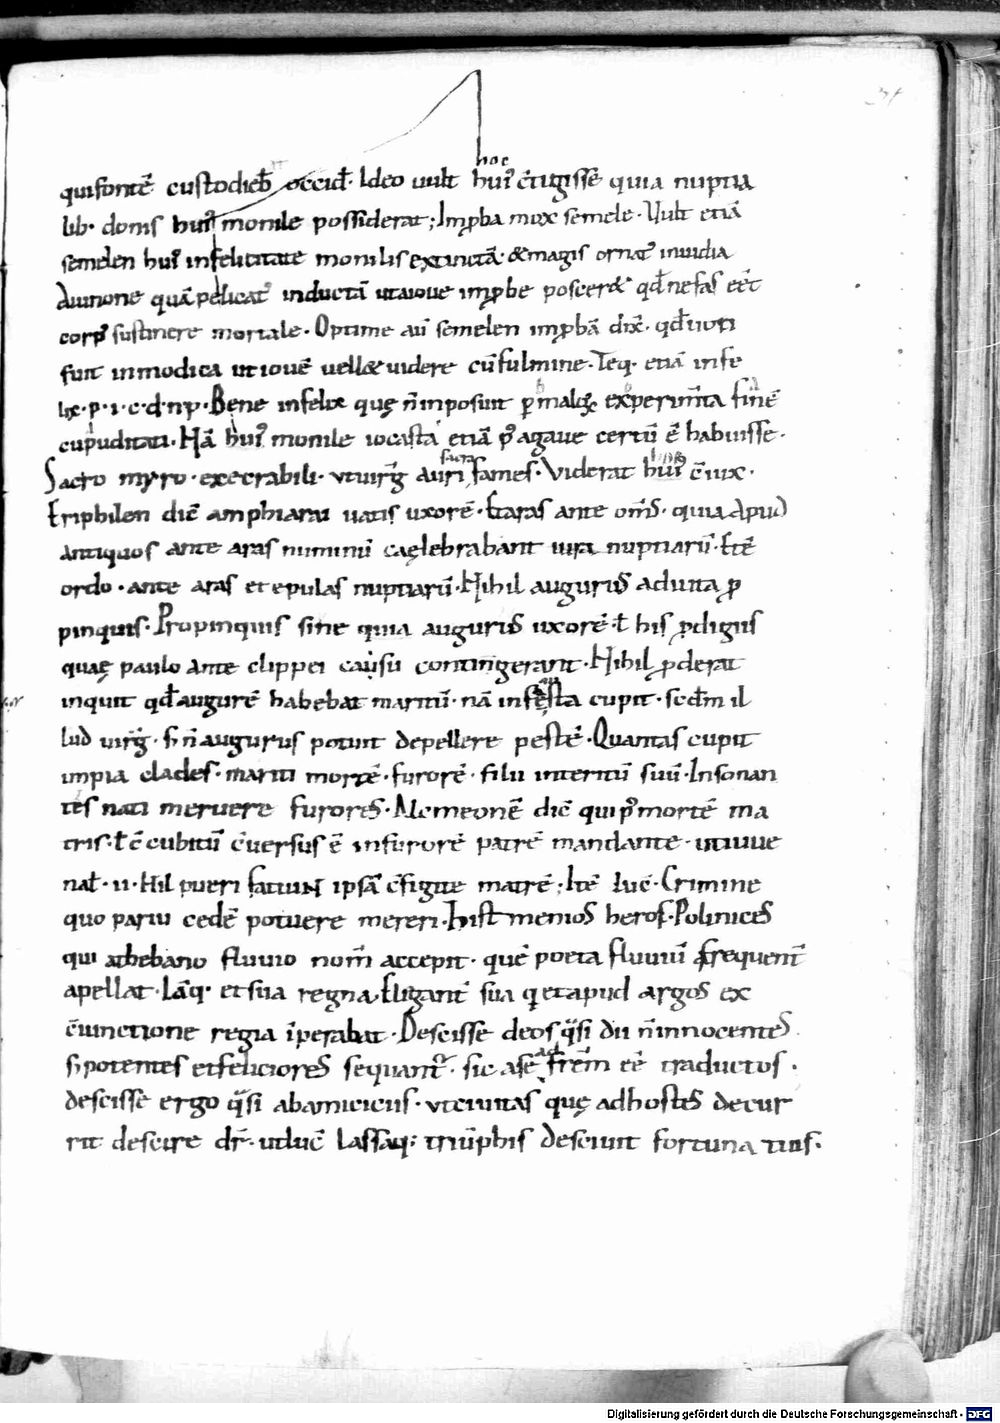 hoc
qui fontē custodieb̄ occid̄· Ideo uult hui᷒ c̄tigisse quia nuptia
lib· donis hui᷒ monile possiderat; Imꝓba mox semele· Uult etiā
semelen hui᷒ infelicitate monilis extinctā· & magis ornat᷒ inuidia
a iunone quā pelicat᷒ inductā ut a ioue imꝓbe poscer& qđ nefas eēt
corp᷒ sustinere mortale· Optime aū semelen imꝓbā dix̄· qđ uoti
fuit inmodica ut iouē uell& uidere cū fulmine· Teq· etiā infe
lix·p·i·c·d·n·p· Bene infelix quę n̄ inposuit ꝑ malę exꝑim̄ta finē
cupuditati· Hā hui᷒ monile iocasta etiā p᷒ agaue certū ē habuisse·
sacra
Sacro myro· execrabili· ut uirḡ auri fames· Viderat hui᷒ c̄iux·
Eriphilen dic̄ amphiarai uatis uxorē· Et aras ante om̄s· quia apud
antiquos ante aras numinū caęlebrabant iura nuptiarū· Et ē
ordo· ante aras et epulas nuptiarū· Nihil auguriis adiuta ꝓ
pinquis· Propinquis sine quia auguris uxorē· ł his ꝓdigiis
quaę paulo ante clippei causu contingerant· Nihil ꝓderat
inquit qđ augurē habebat maritū· nā infesta cupit· sedm̄ il
lud uirḡ· S; n̄ auguriis potuit depellere pestē· Quantas cupit
impia clades· mariti mortē· furorē· filii interitū suū· Insonan
tes nati meruere furores· Alcmeonē dic̄ qui p᷒ mortē ma
tris· ł c̄cubitū c̄uersus ē in furorē patrē mandante· ut iuue
nał· ii· Nil pueri faciuN ipsā c̄figite matrē; Itē luc̄· Crimine
quo parui cedē potuere mereri· Hist menios heros· Polinices
qui a thebano fluuio nom̄ accepit· quē poeta fluuiū frequent᷑
apellat· Lāq· et sua regna· Eligant᷑ sua q et apud argos ex
c̄iunctione regia īperabat· Descisse deos q̄si dii n̄ innocentes
s; potentes et feliciores sequant᷑· sic a se ad frēm eē traductos·
descisse ergo q̄si ab amicicus· ut ciuitas quę ad hostes decur
rit descire dr̄· ut luc̄ Lassaq; triūphis desciuit fortuna tuis·